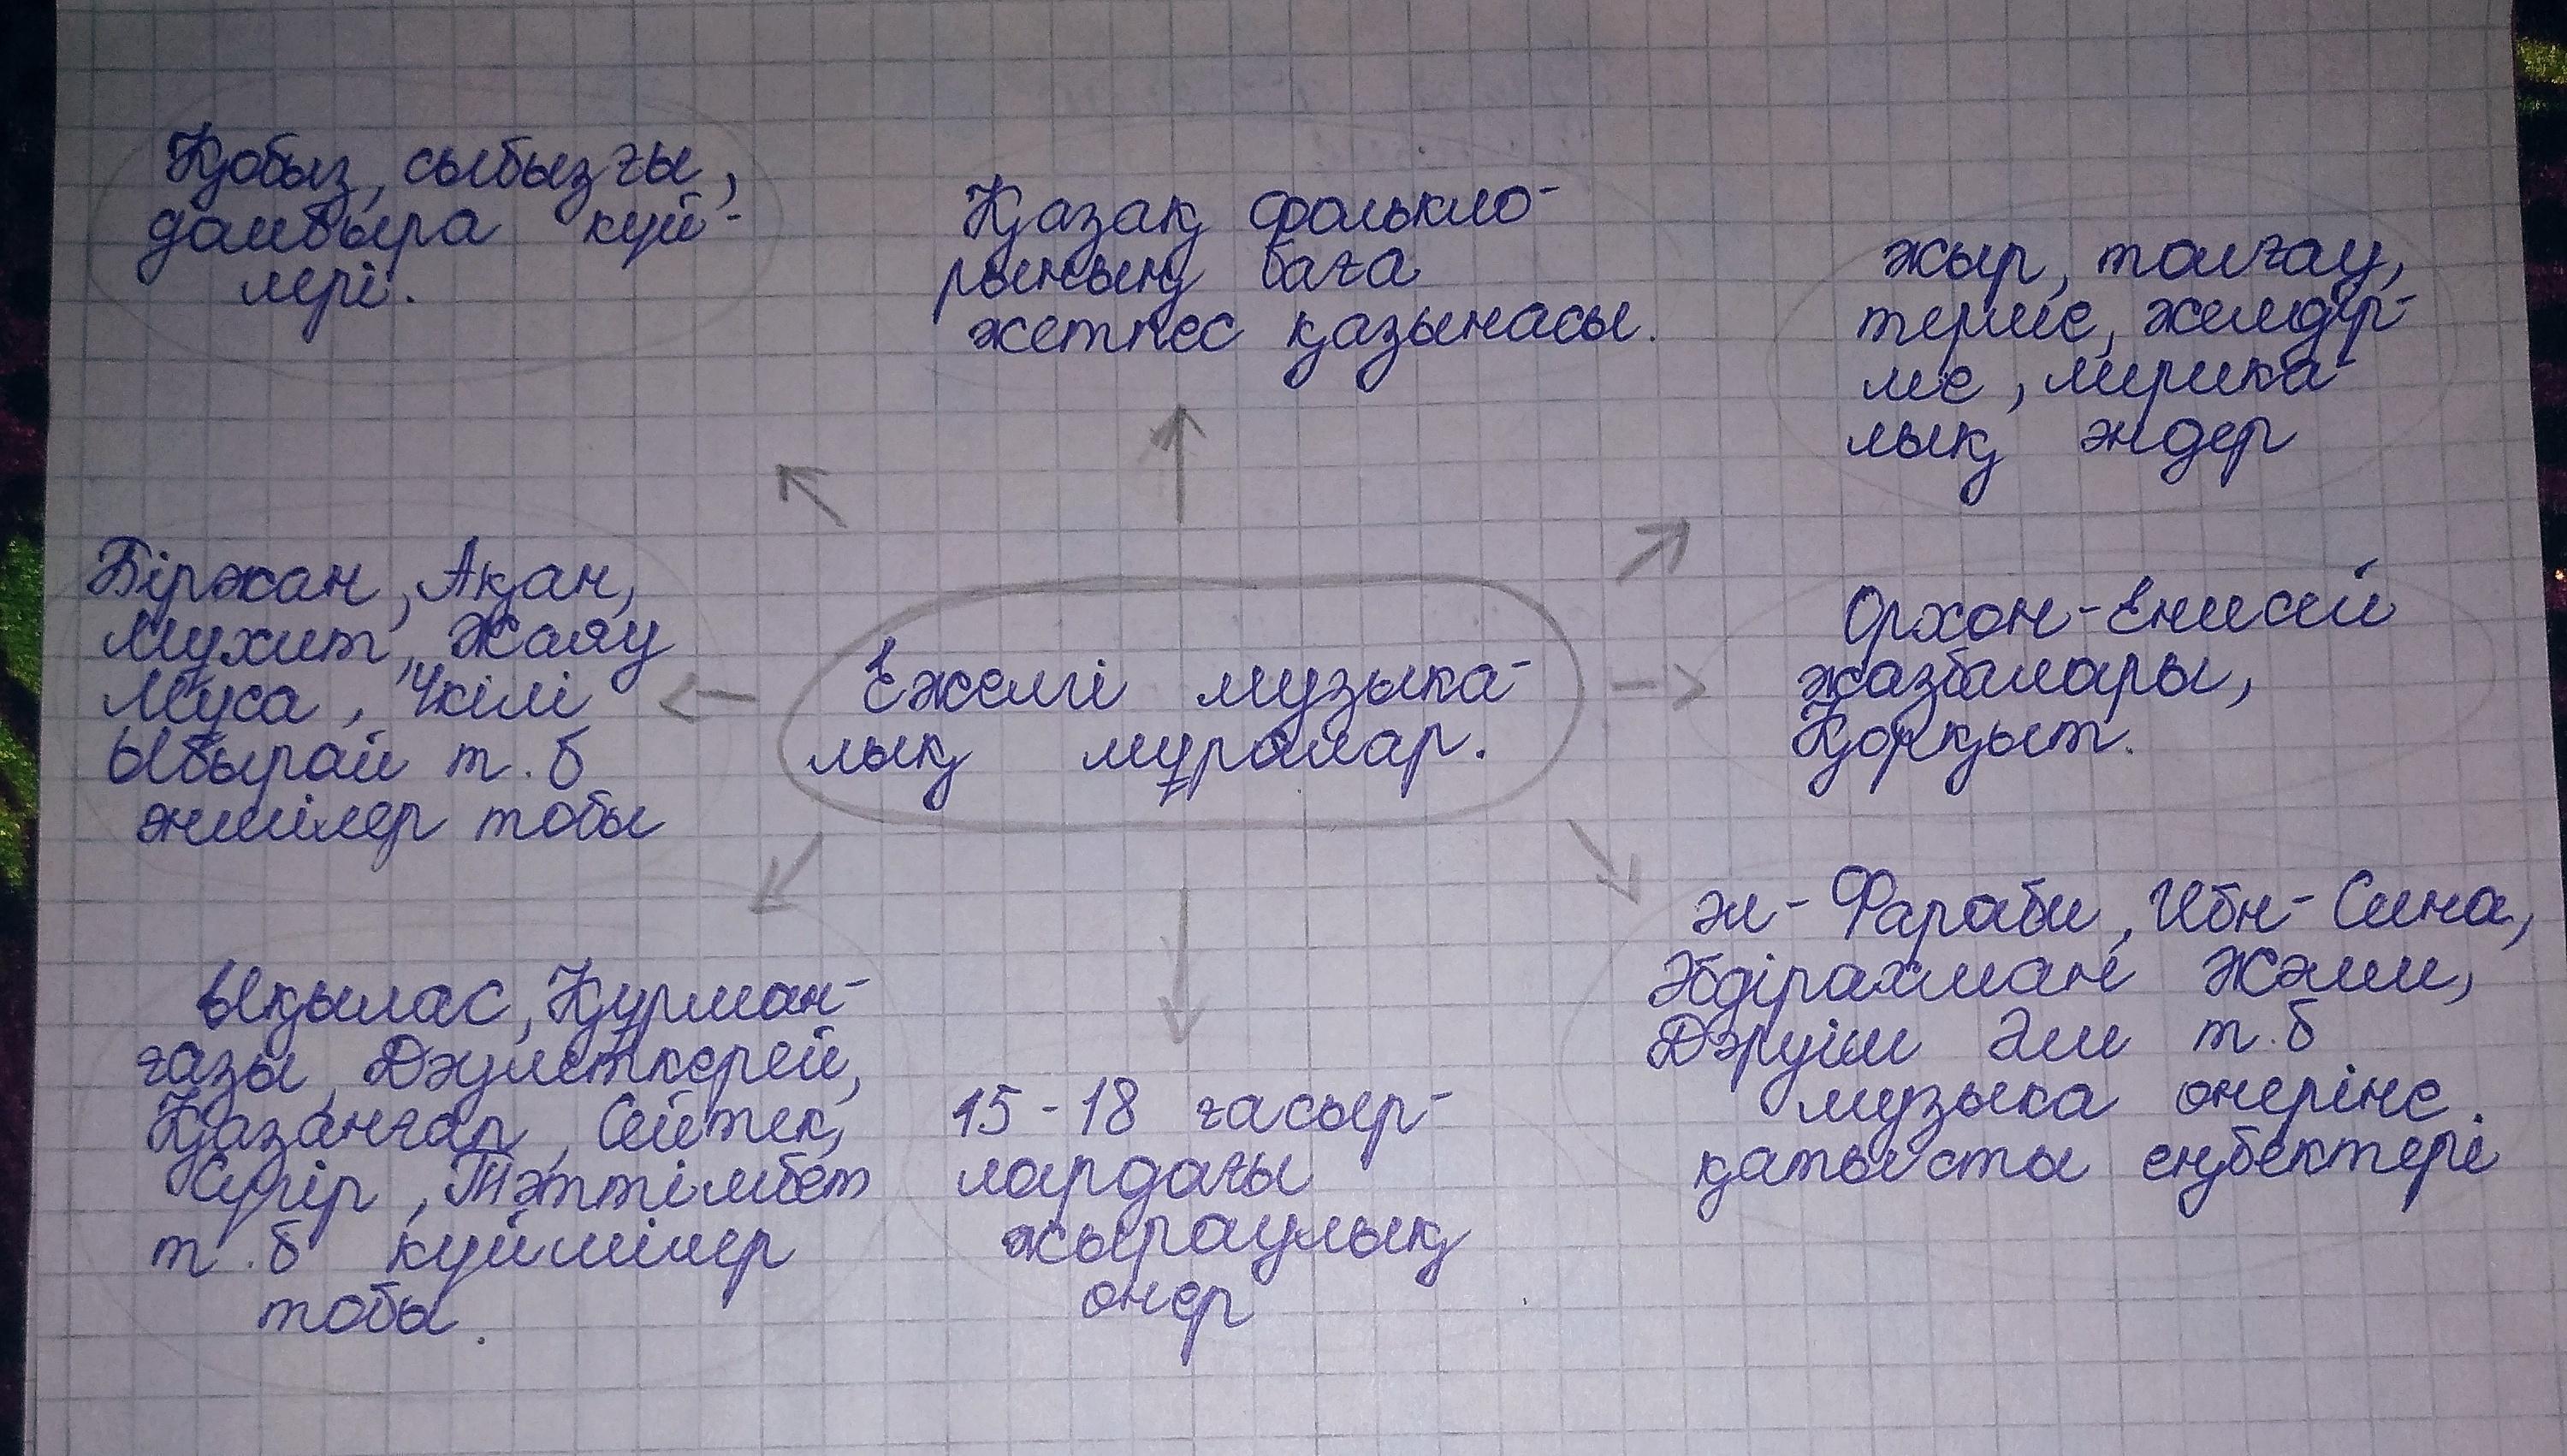 Қобыз, сыбызғы,
домбыра күй-
лері.
Қазақ фолькло-
рының баға
жетпес қазынасы.
жыр, толғау,
терме, желдір-
ме, лирика
лық әндер
Біржан, Ақан,
Мухит, Жаяу
Муса, Үкілі
Ыбырай т.б
әншілер тобы
Ежелгі музыка-
лық мұралар.
Орхон-Енисей
жазбалары,
Қорқыт.
Ықылас, Құрман-
ғазы, Дәулеткерей,
Қазанғап, Сейтек,
Сүгір, Тәттімбет
т.б күйшілер
тобы.
15-18 ғасыр-
лардағы
жыраулық
өнер
әл-Фараби, Ибн-Сина,
Әбдірахман Жәми,
Дәруіш Әли т.б
музыка өнеріне
қатысты еңбектері